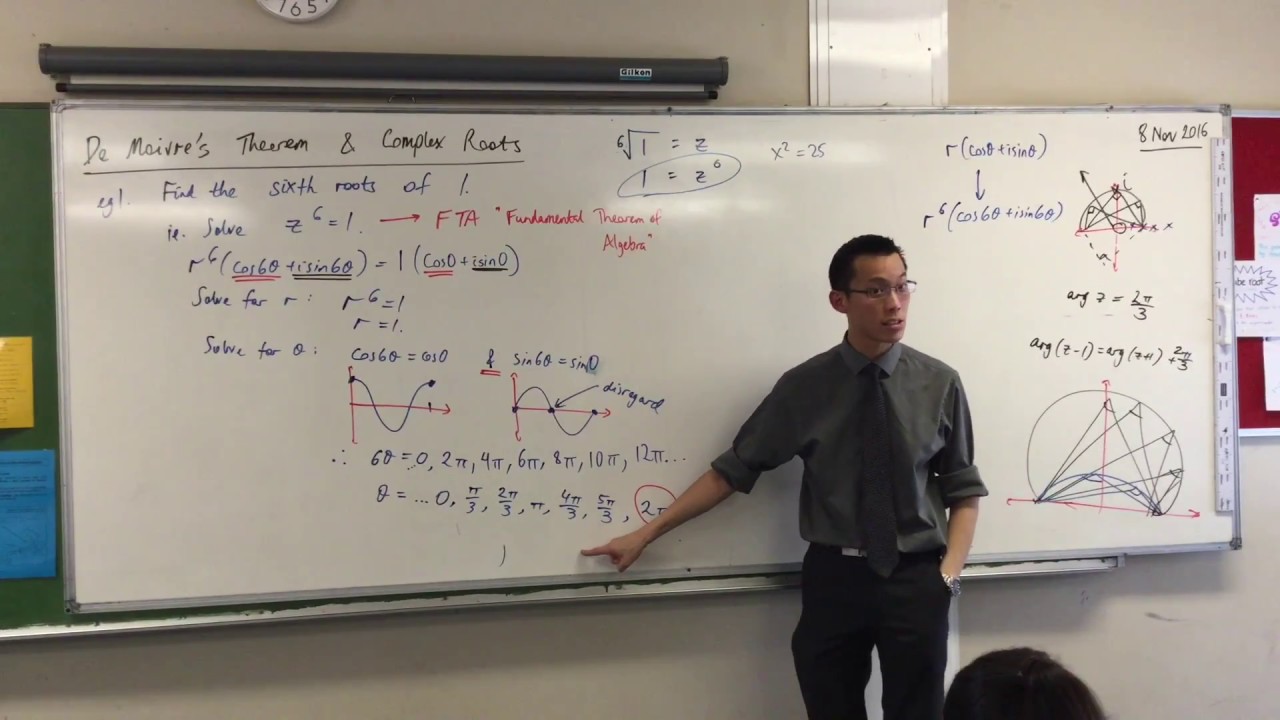 7 6 5
Gilkon
De Moivre's Theorem & Complex Roots
eg1. Find the sixth roots of 1.
ie. Solve z⁶ = 1. → FTA "Fundamental Theorem of
Algebra"
r⁶(cos6θ + isin6θ) = 1(cos0 + isin0)
Solve for r: r⁶ = 1
r = 1.
Solve for θ: cos6θ = cos0 & sin6θ = sin0
disregard
∴ 6θ = ...0, 2π, 4π, 6π, 8π, 10π, 12π...
θ = ...0, π/3, 2π/3, π, 4π/3, 5π/3, 2π
⁶√1 = z
1 = z⁶
x² = 25
r(cosθ + isinθ)
↓
r⁶(cos6θ + isin6θ)
8 Nov 2016
i
arg z = 2π/3
arg(z-1) = arg(z+1) + 2π/3
be root